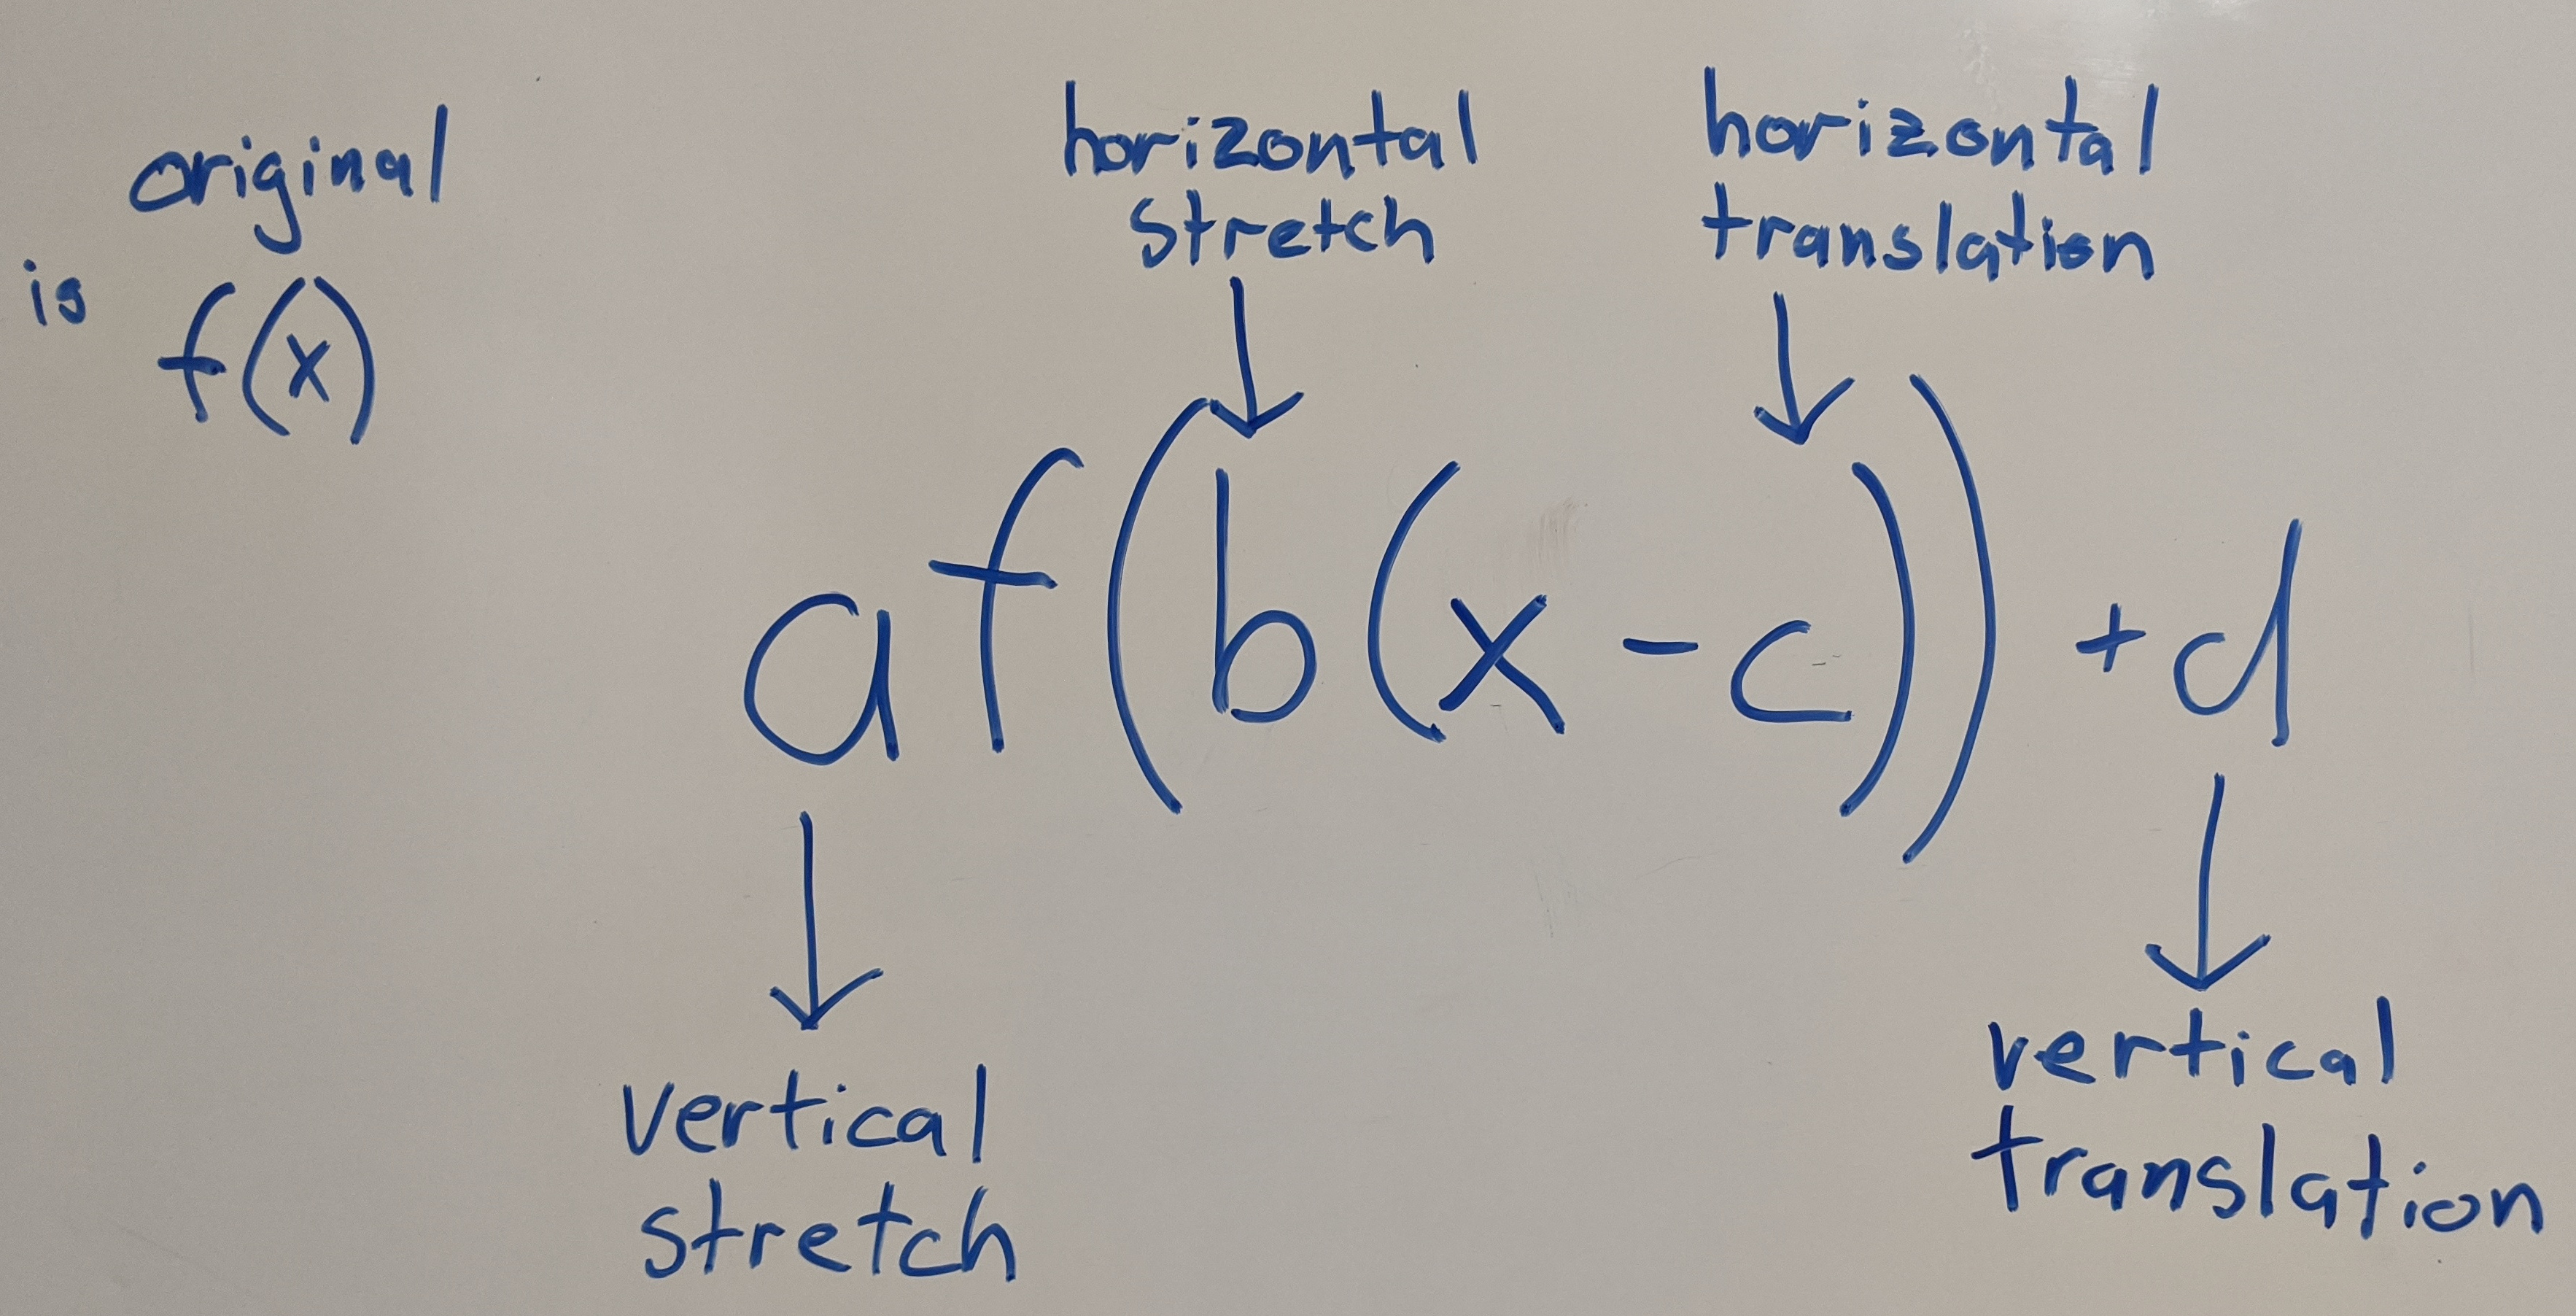 original
is
f(x)
horizontal
stretch
horizontal
translation
af(b(x-c))+d
vertical
stretch
vertical
translation